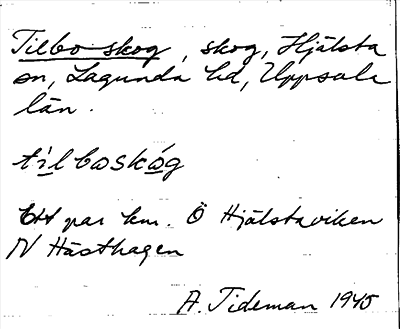 Tilbo skog, skog, Hjälsta
sn, Lagunda hd, Uppsala
län.
tilboskåg
Ett par km. Ö Hjälstaviken
N Hästhagen
A. Tideman 1945